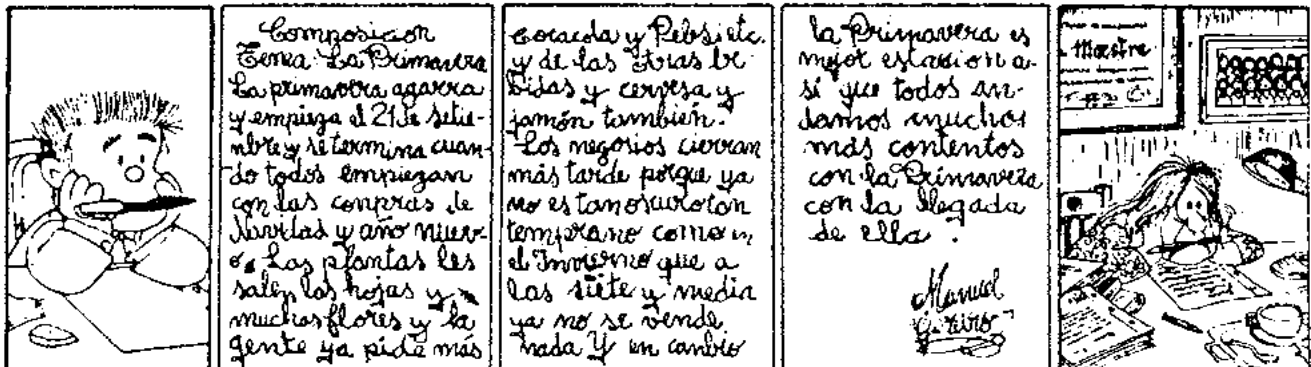 Composicion
Tema: La Primavera
La primavera agarra
y empieza el 21 de setie-
mbre y se termina cuan-
do todos empiezan
con las conpras de
Navidad y año nuev-
o. Las plantas les
salen las hojas y
muchas flores y la
gente ya pide más
cocacola y Pebsi etc.
y de las otras be
bidas y cervesa y
jamón también.
Los negosios cierran
más tarde porque ya
no es tan oscuro tan
temprano como en
el Invierno que a
las siete y media
ya no se vende
nada Y en canbio
la Primavera es
mejor estasion a-
sí que todos an-
damos muchos
más contentos
con la Primavera
con la llegada
de ella.
Manuel
Maestra